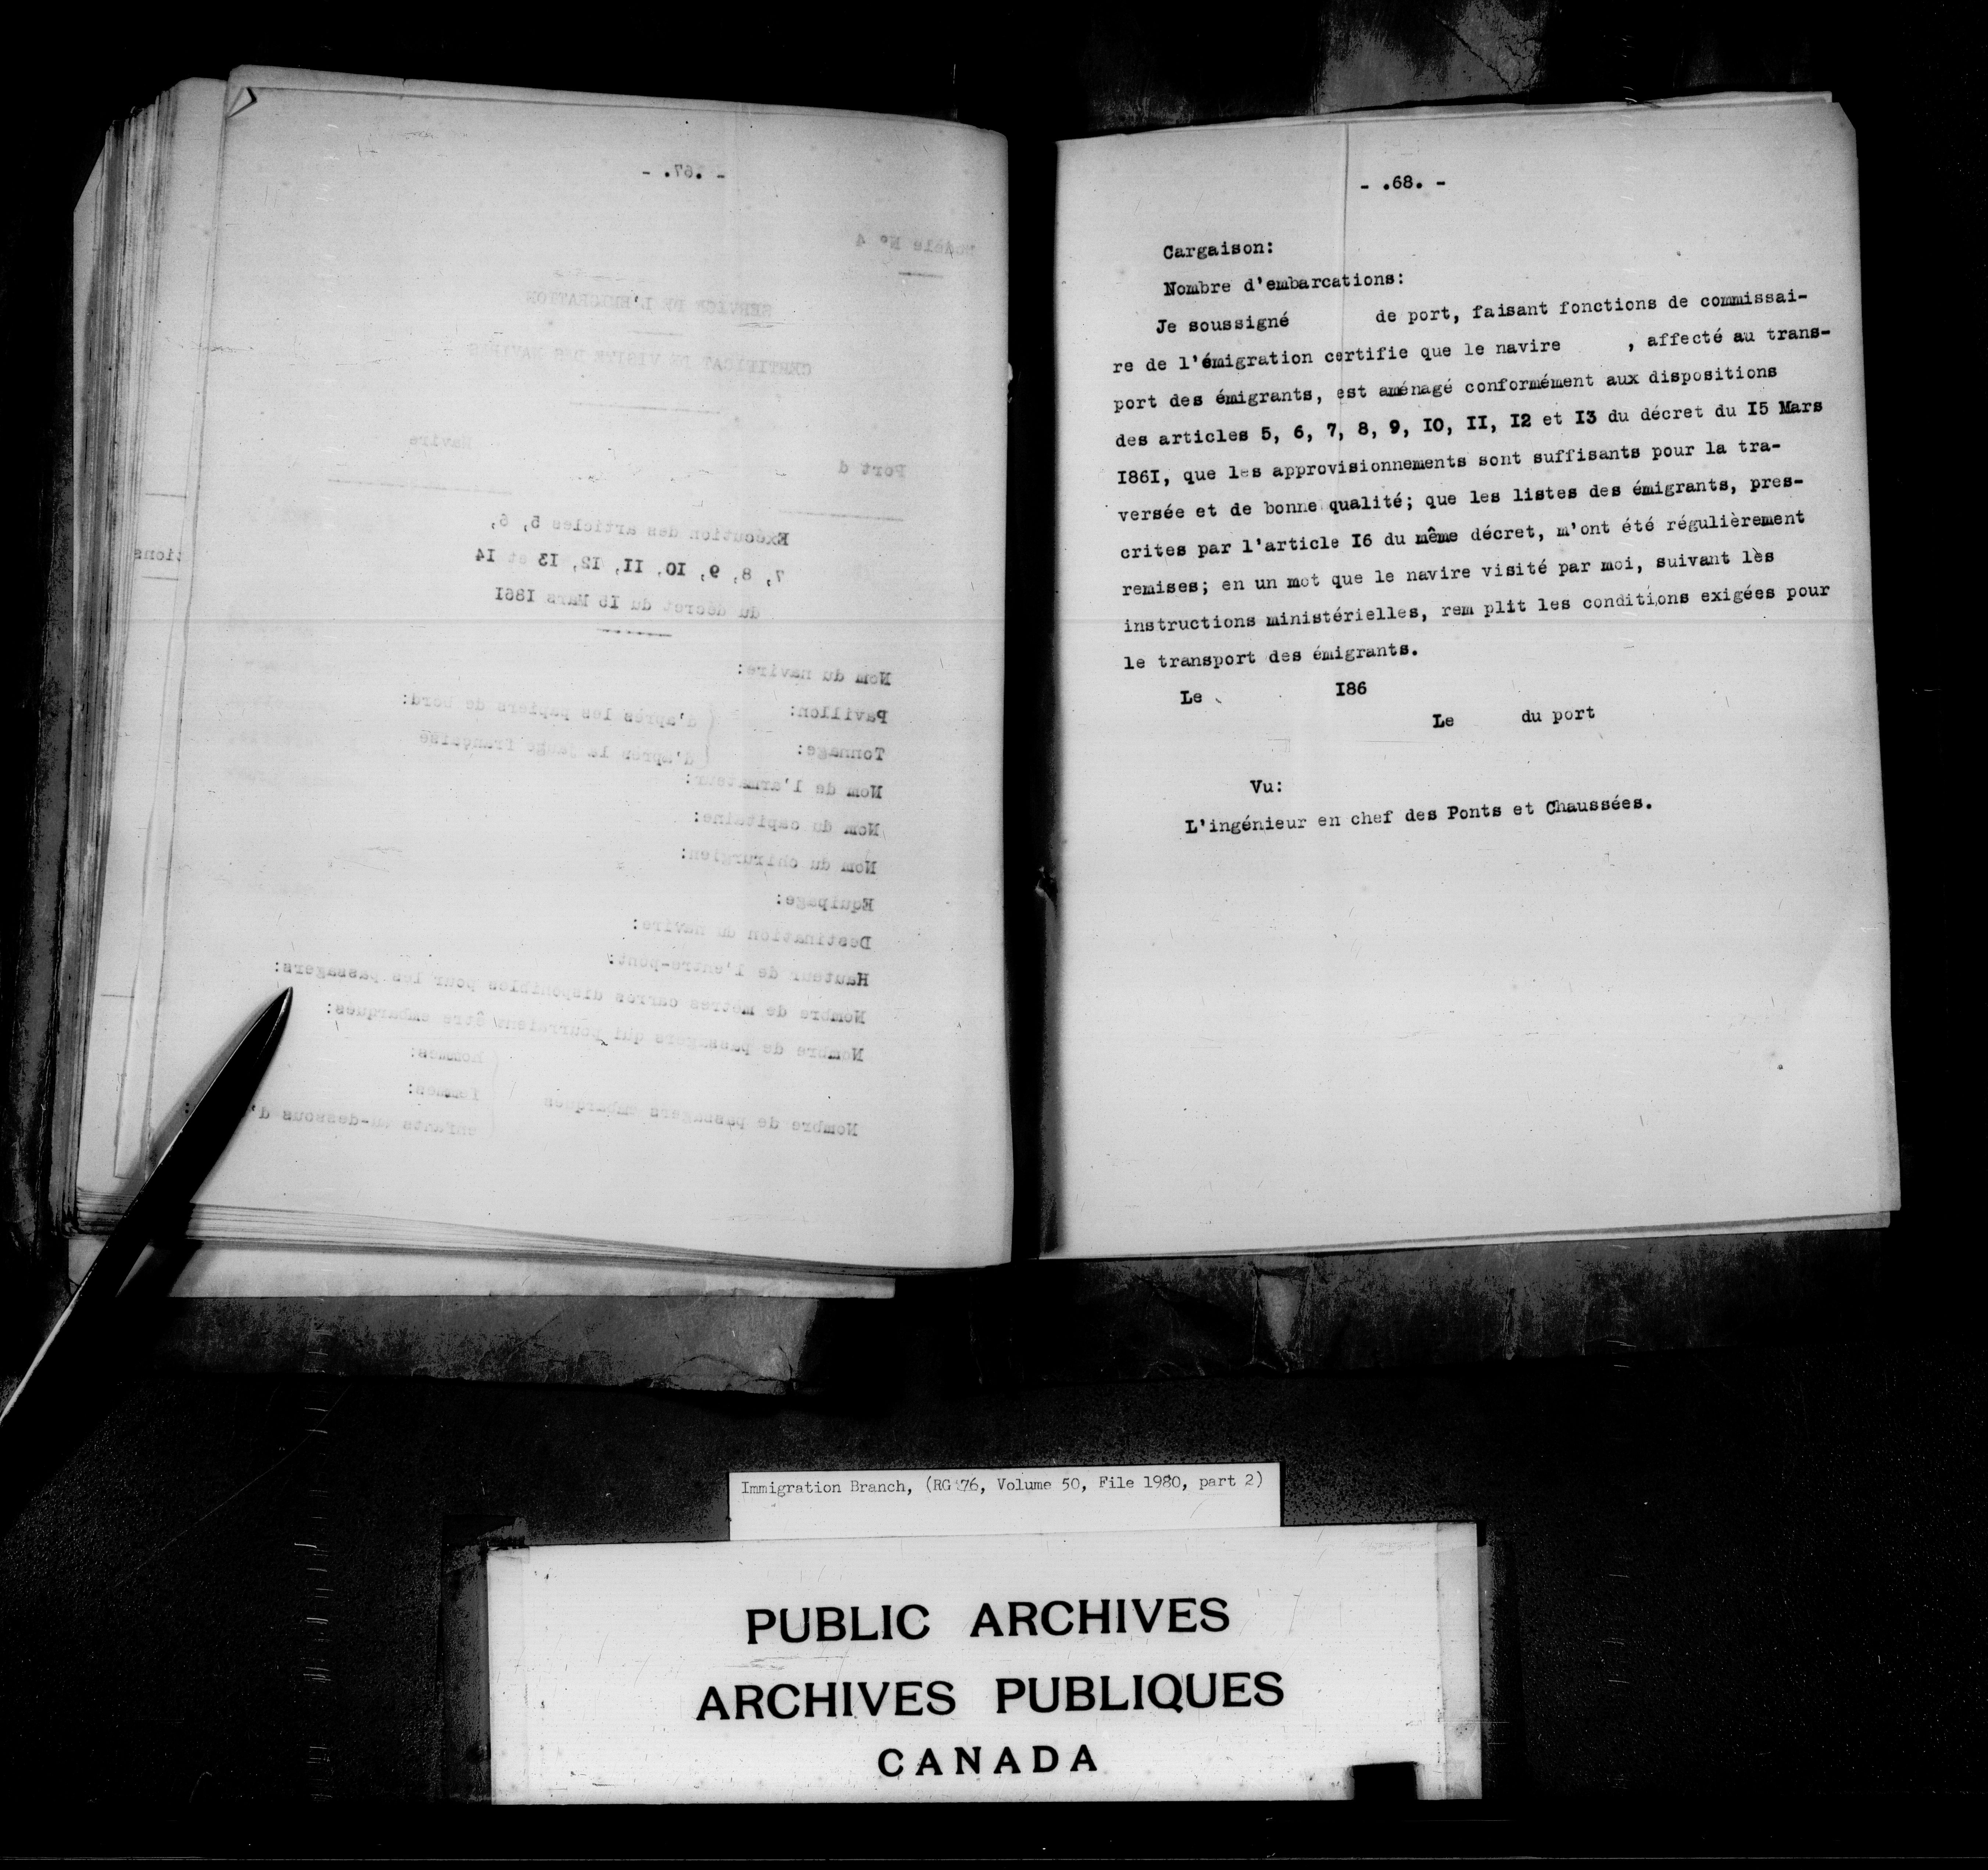 - .67. -
Modèle Nº 4
SERVICE DE L'EMIGRATION
CERTIFICAT DE VISITE DES NAVIRES
Navire
Port d
Exécution des articles 5, 6,
7, 8, 9, IO, II, I2, I3 et I4
du décret du I5 Mars I86I
Nom du navire:
Pavillon: d'après les papiers de bord:
Tonnage: d'après la jauge française
Nom de l'armateur:
Nom du capitaine:
Nom du chirurgien:
Equipage:
Destination du navire:
Hauteur de l'entre-pont:
Nombre de mètres carrés disponibles pour les passagers:
Nombre de passagers qui pourraient être embarqués:
hommes:
femmes:
Nombre de passagers embarqués
enfants au-dessous d'
tions
- .68. -
Cargaison:
Nombre d'embarcations:
Je soussigné de port, faisant fonctions de commissai-
re de l'émigration certifie que le navire , affecté au trans-
port des émigrants, est aménagé conformément aux dispositions
des articles 5, 6, 7, 8, 9, IO, II, I2 et I3 du décret du I5 Mars
I86I, que les approvisionnements sont suffisants pour la tra-
versée et de bonne qualité; que les listes des émigrants, pres-
crites par l'article I6 du même décret, m'ont été régulièrement
remises; en un mot que le navire visité par moi, suivant lès
instructions ministérielles, rem plit les conditions exigées pour
le transport des émigrants.
Le I86
Le du port
Vu:
L'ingénieur en chef des Ponts et Chaussées.
Immigration Branch, (RG 76, Volume 50, File 1980, part 2)
PUBLIC ARCHIVES
ARCHIVES PUBLIQUES
CANADA